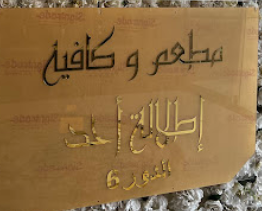 مطعم و كافية
إطلالة أحد
النور 6